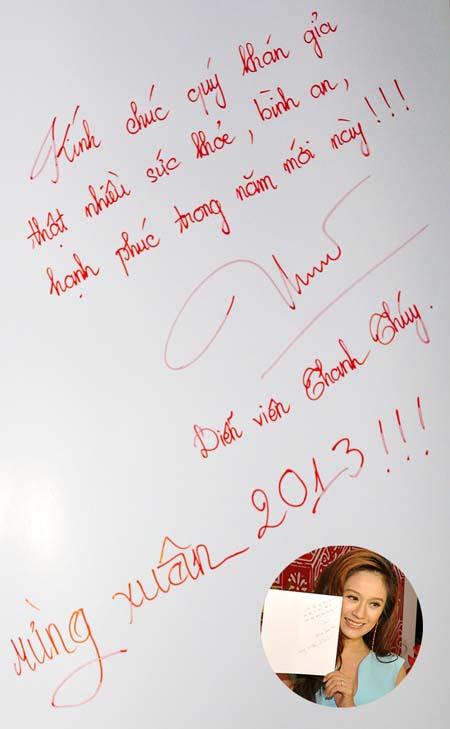 Kính chúc quý khán giả
thật nhiều sức khỏe, bình an,
hạnh phúc trong năm mới này!!!
Diễn viên Thanh Thúy.
Mừng xuân 2013!!!